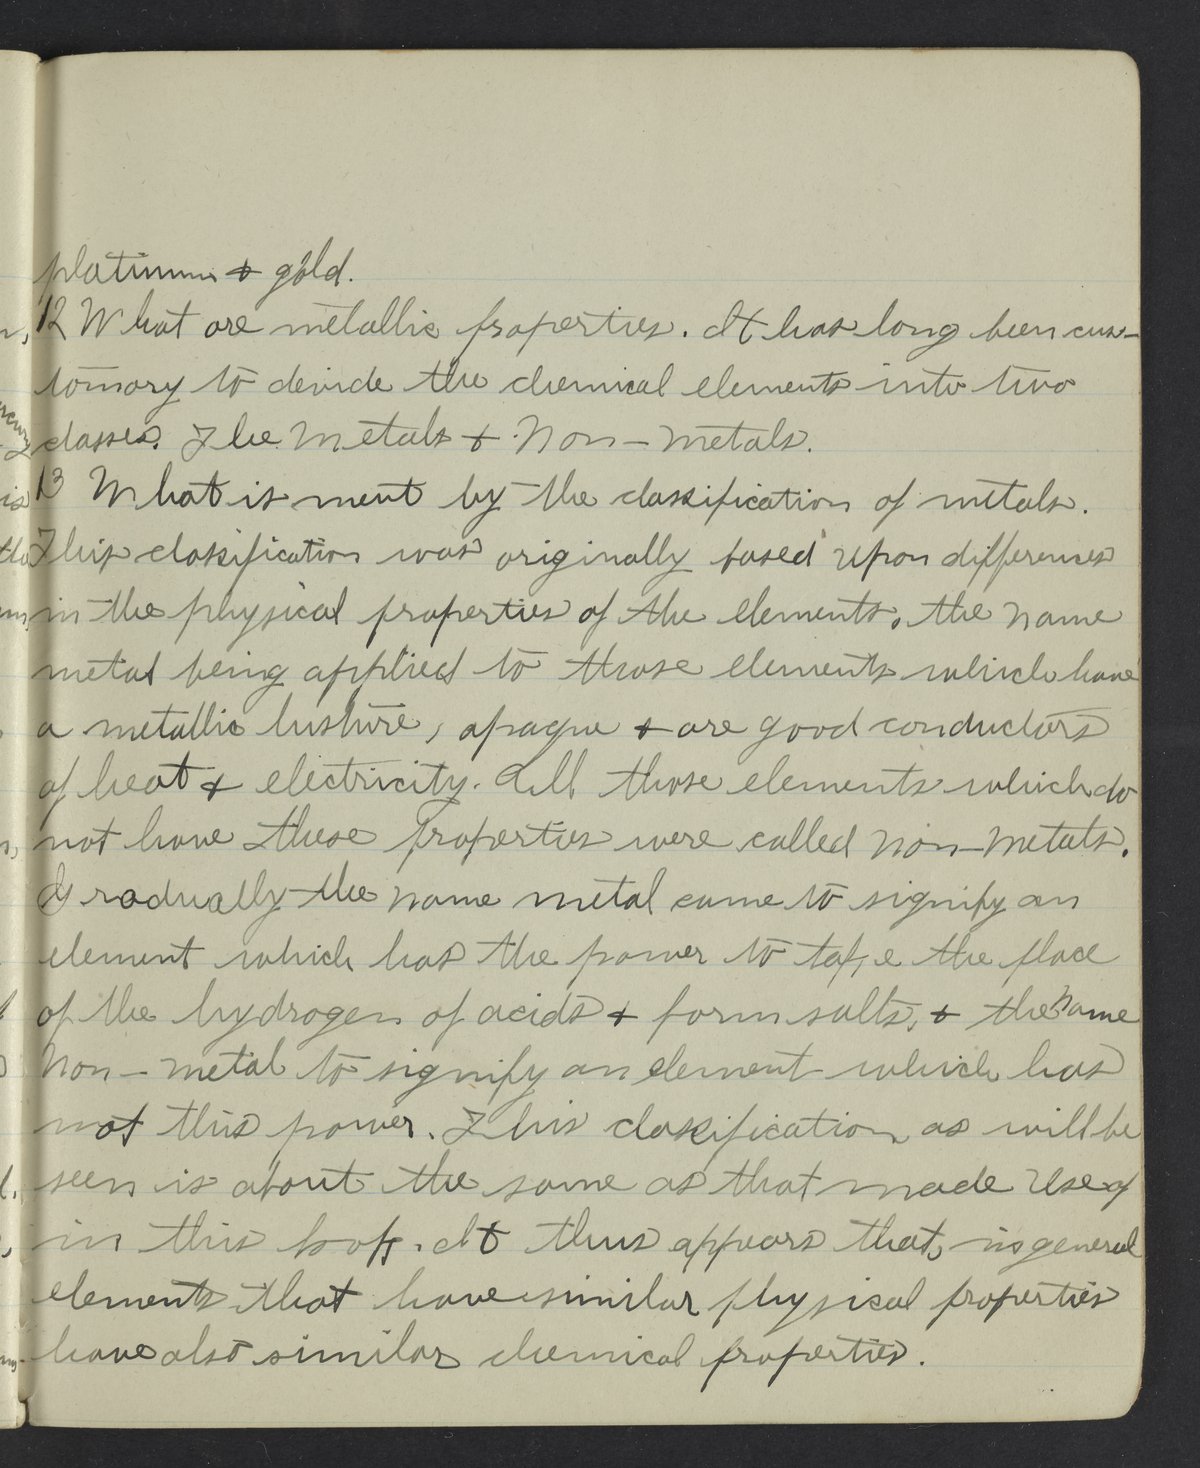 platinum & gold.
12 What are metallic properties. It has long been cus-
tomary to devide the chemical elements into two
classes. The Metals & Non-metals.
13 What is ment by the classification of metals.
This classification was originally based upon differences
in the physical properties of the elements, the name
metal being applied to those elements which have
a metallic lusture, opaque & are good conductors
of heat & electricity. All those elements which do
not have these Properties were called Non-Metals.
Gradually the name metal came to signify an
element which has the power to take the place
of the hydrogen of acids & form salts, & the name
Non-metal to signify an element which has
not this power. This classification as will be
seen is about the same as that made Use of
in this book. It thus appears that, in general
elements that have similar physical properties
have also similar chemical properties.